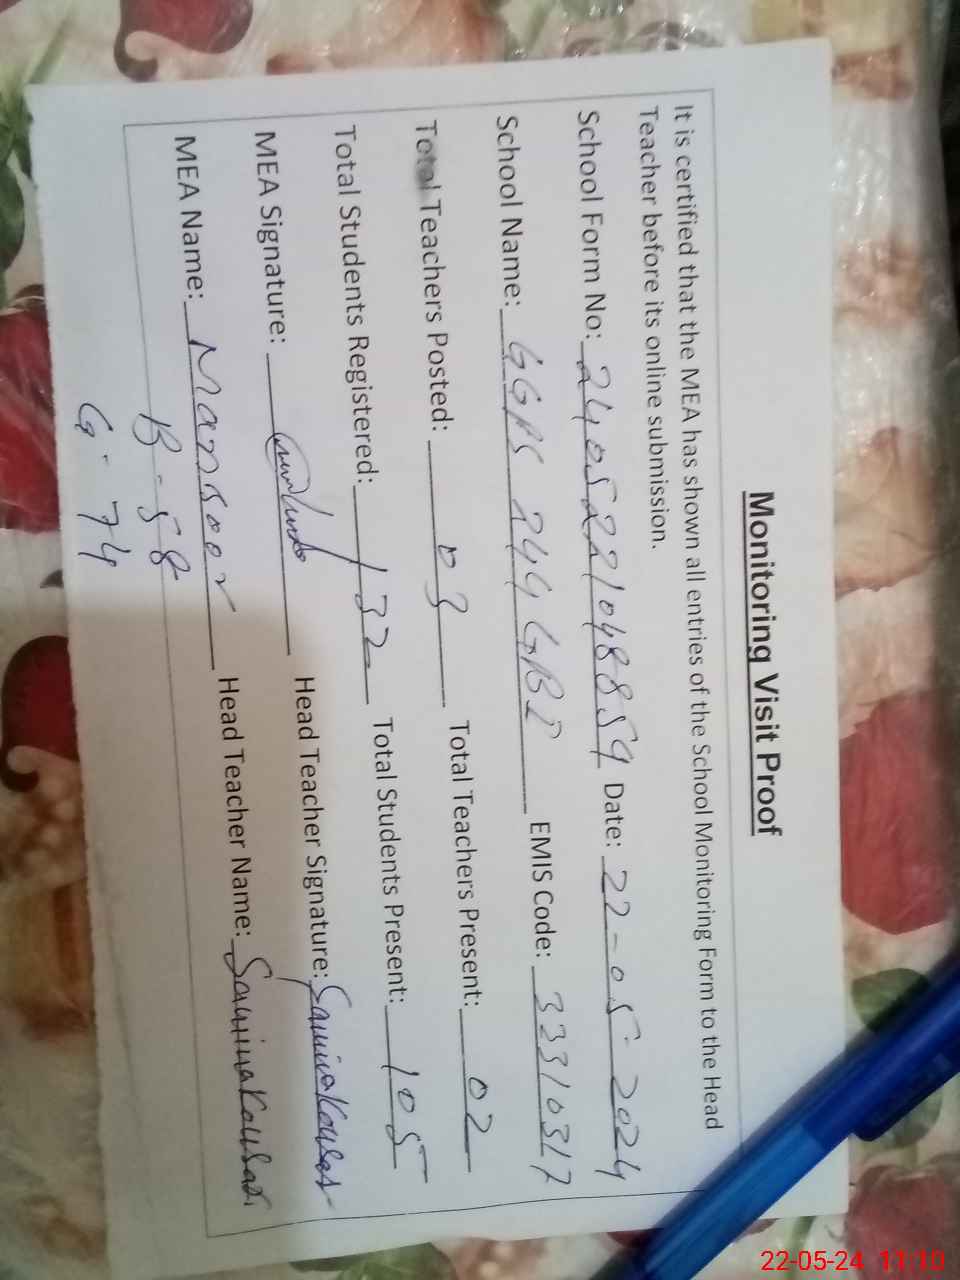 Monitoring Visit Proof
It is certified that the MEA has shown all entries of the School Monitoring Form to the Head
Teacher before its online submission.
School Form No: 24052210488859 Date: 22-05-2024
School Name: GGPS 244 GBI EMIS Code: 33310317
Total Teachers Posted: 03 Total Teachers Present: 02
Total Students Registered: 132 Total Students Present: 105
MEA Signature: Head Teacher Signature: Samina Kousar
MEA Name: Mansoor Head Teacher Name: Samina Kousar
B - 58
G - 74
22-05-24 11:10